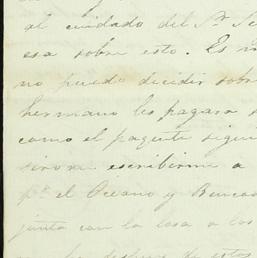 al cuidado del Sr. Se
esa sobre esto. Es
no puedo decidir sobr
hermano les pagara
como el paquete sigui
sirva escribirme a
pr. el Oceano y
junta con la casa a los